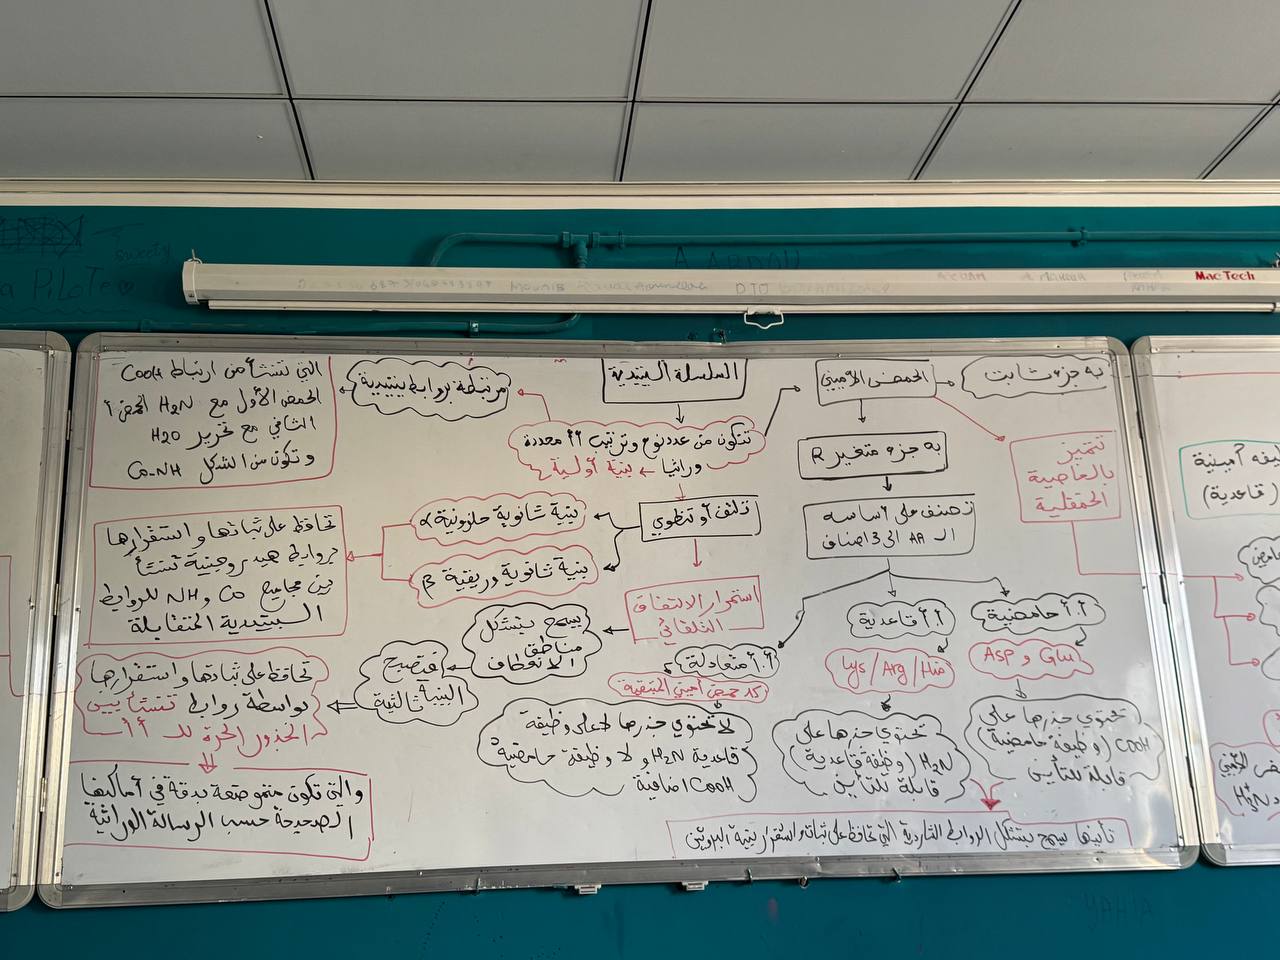 sweety
a PiLoTe
MacTech
السلسلة الببتيدية
تتكون من عدد نوع وترتيب أأ محددة
وراثيا ← بنية أولية
مرتبطة بروابط ببتيدية
التي تنشأ من ارتباط COOH
الحمض الأول مع H2N الحمض أ
الثاني مع تحرير H2O
وتكون من الشكل CO-NH
الحمض الأميني
به جزء ثابت
تتميز
بالخاصية
الحمقلية
به جزء متغير R
تصنف على أساسه
الـ AA الى 3 اصناف
أ.أ حامضية
Glu و Asp
تحتوي جذرها على
COOH (وظيفة حامضية)
قابلة للتأين
أ.أ قاعدية
Lys/Arg/His
تحتوي جذرها على
H2N (وظيفة قاعدية)
قابلة للتأين
أ.أ متعادلة
كل حمض أميني المتبقية
لا تحتوي جذرها لا على وظيفة
قاعدية H2N و لا وظيفة حامضية
COOH اضافية
تأينها يسمح بتشكل الروابط الشاردية التي تحافظ على ثبات واستقرار بنية البروتين
تلتف أو تنطوي
بنية ثانوية حلزونية α
بنية ثانوية وريقية β
تحافظ على ثباتها واستقرارها
بروابط هيدروجينية تنشأ
بين مجاميع CO و NH للروابط
الببتيدية المتقابلة
استمرار الالتفاف
التلقائي
يسمح بتشكل
مناطق
الانعطاف
فتصبح
البنية ثالثية
تحافظ على ثباتها واستقرارها
بواسطة روابط تنشأ بين
الجذور الحرة للـ أأ
والتي تكون متموضعة بدقة في أماكنها
الصحيحة حسب الرسالة الوراثية
وظيفة أمينية
(قاعدية)
YAHIA